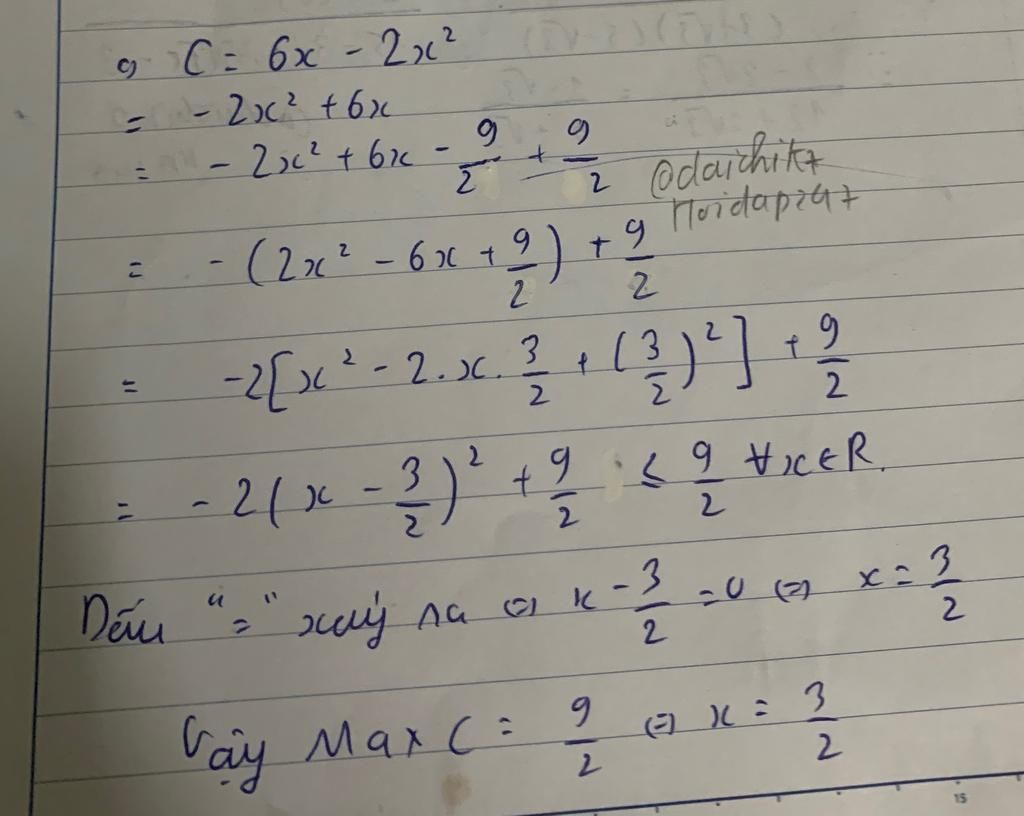 c) C = 6x - 2x²
= - 2x² + 6x
= - 2x² + 6x - 9/2 + 9/2
@daichitz
Hoidap247
= - (2x² - 6x + 9/2) + 9/2
= -2[x² - 2.x. 3/2 + (3/2)²] + 9/2
= - 2(x - 3/2)² + 9/2 ≤ 9/2 ∀x∈R.
Dấu "=" xảy ra ⇔ x - 3/2 = 0 ⇔ x = 3/2
Vậy Max C = 9/2 ⇔ x = 3/2
15